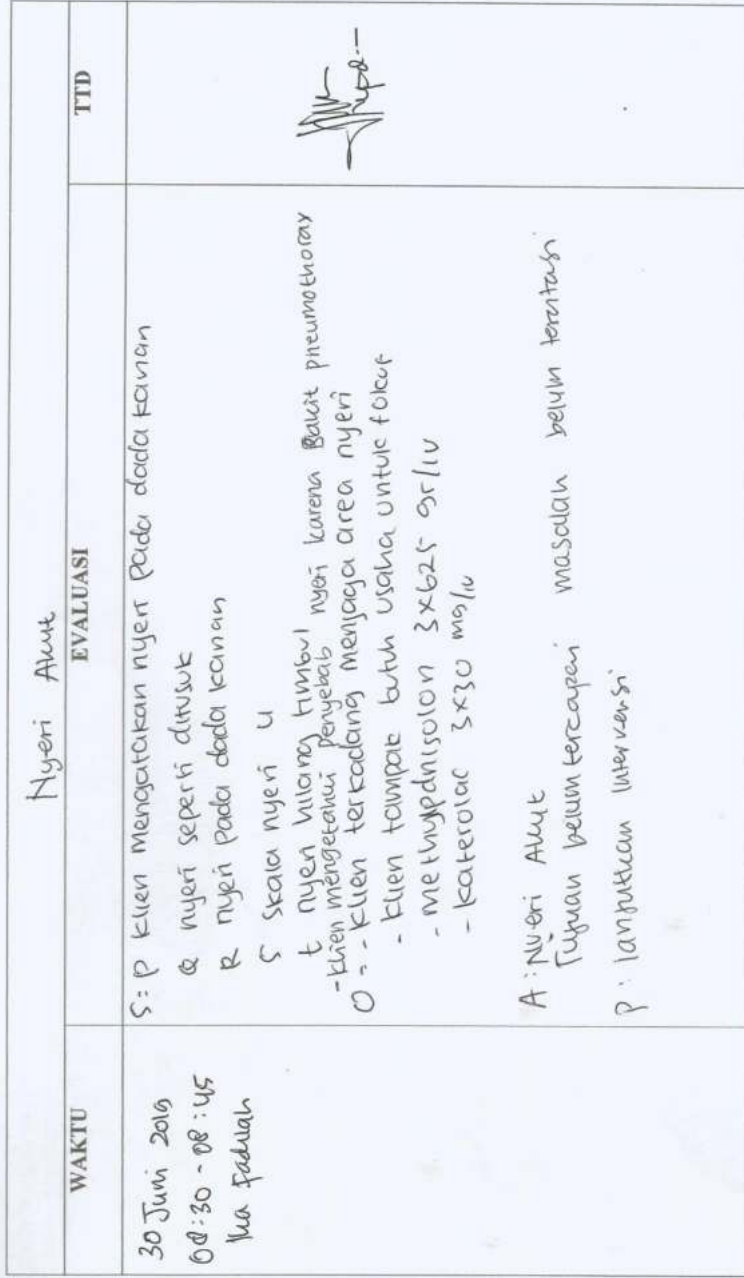 Nyeri Akut
WAKTU
EVALUASI
TTD
30 Juni 2019
08:30 - 08:45
Ika Fadilah
S: P klien mengatakan nyeri pada dada kanan
Q nyeri seperti ditusuk
R nyeri pada dada kanan
S Skala nyeri 4
t nyeri hilang timbul
- klien mengetahui penyebab nyeri karena sakit pneumothorax
O = - klien terkadang menjaga area nyeri
- klien tampak butuh usaha untuk fokus
- methypdnisolon 3x625 gr/iv
- katerolac 3x30 mg/iv
A : Nyeri Akut
Tujuan belum tercapai masalah belum teratasi
P : lanjutkan Intervensi